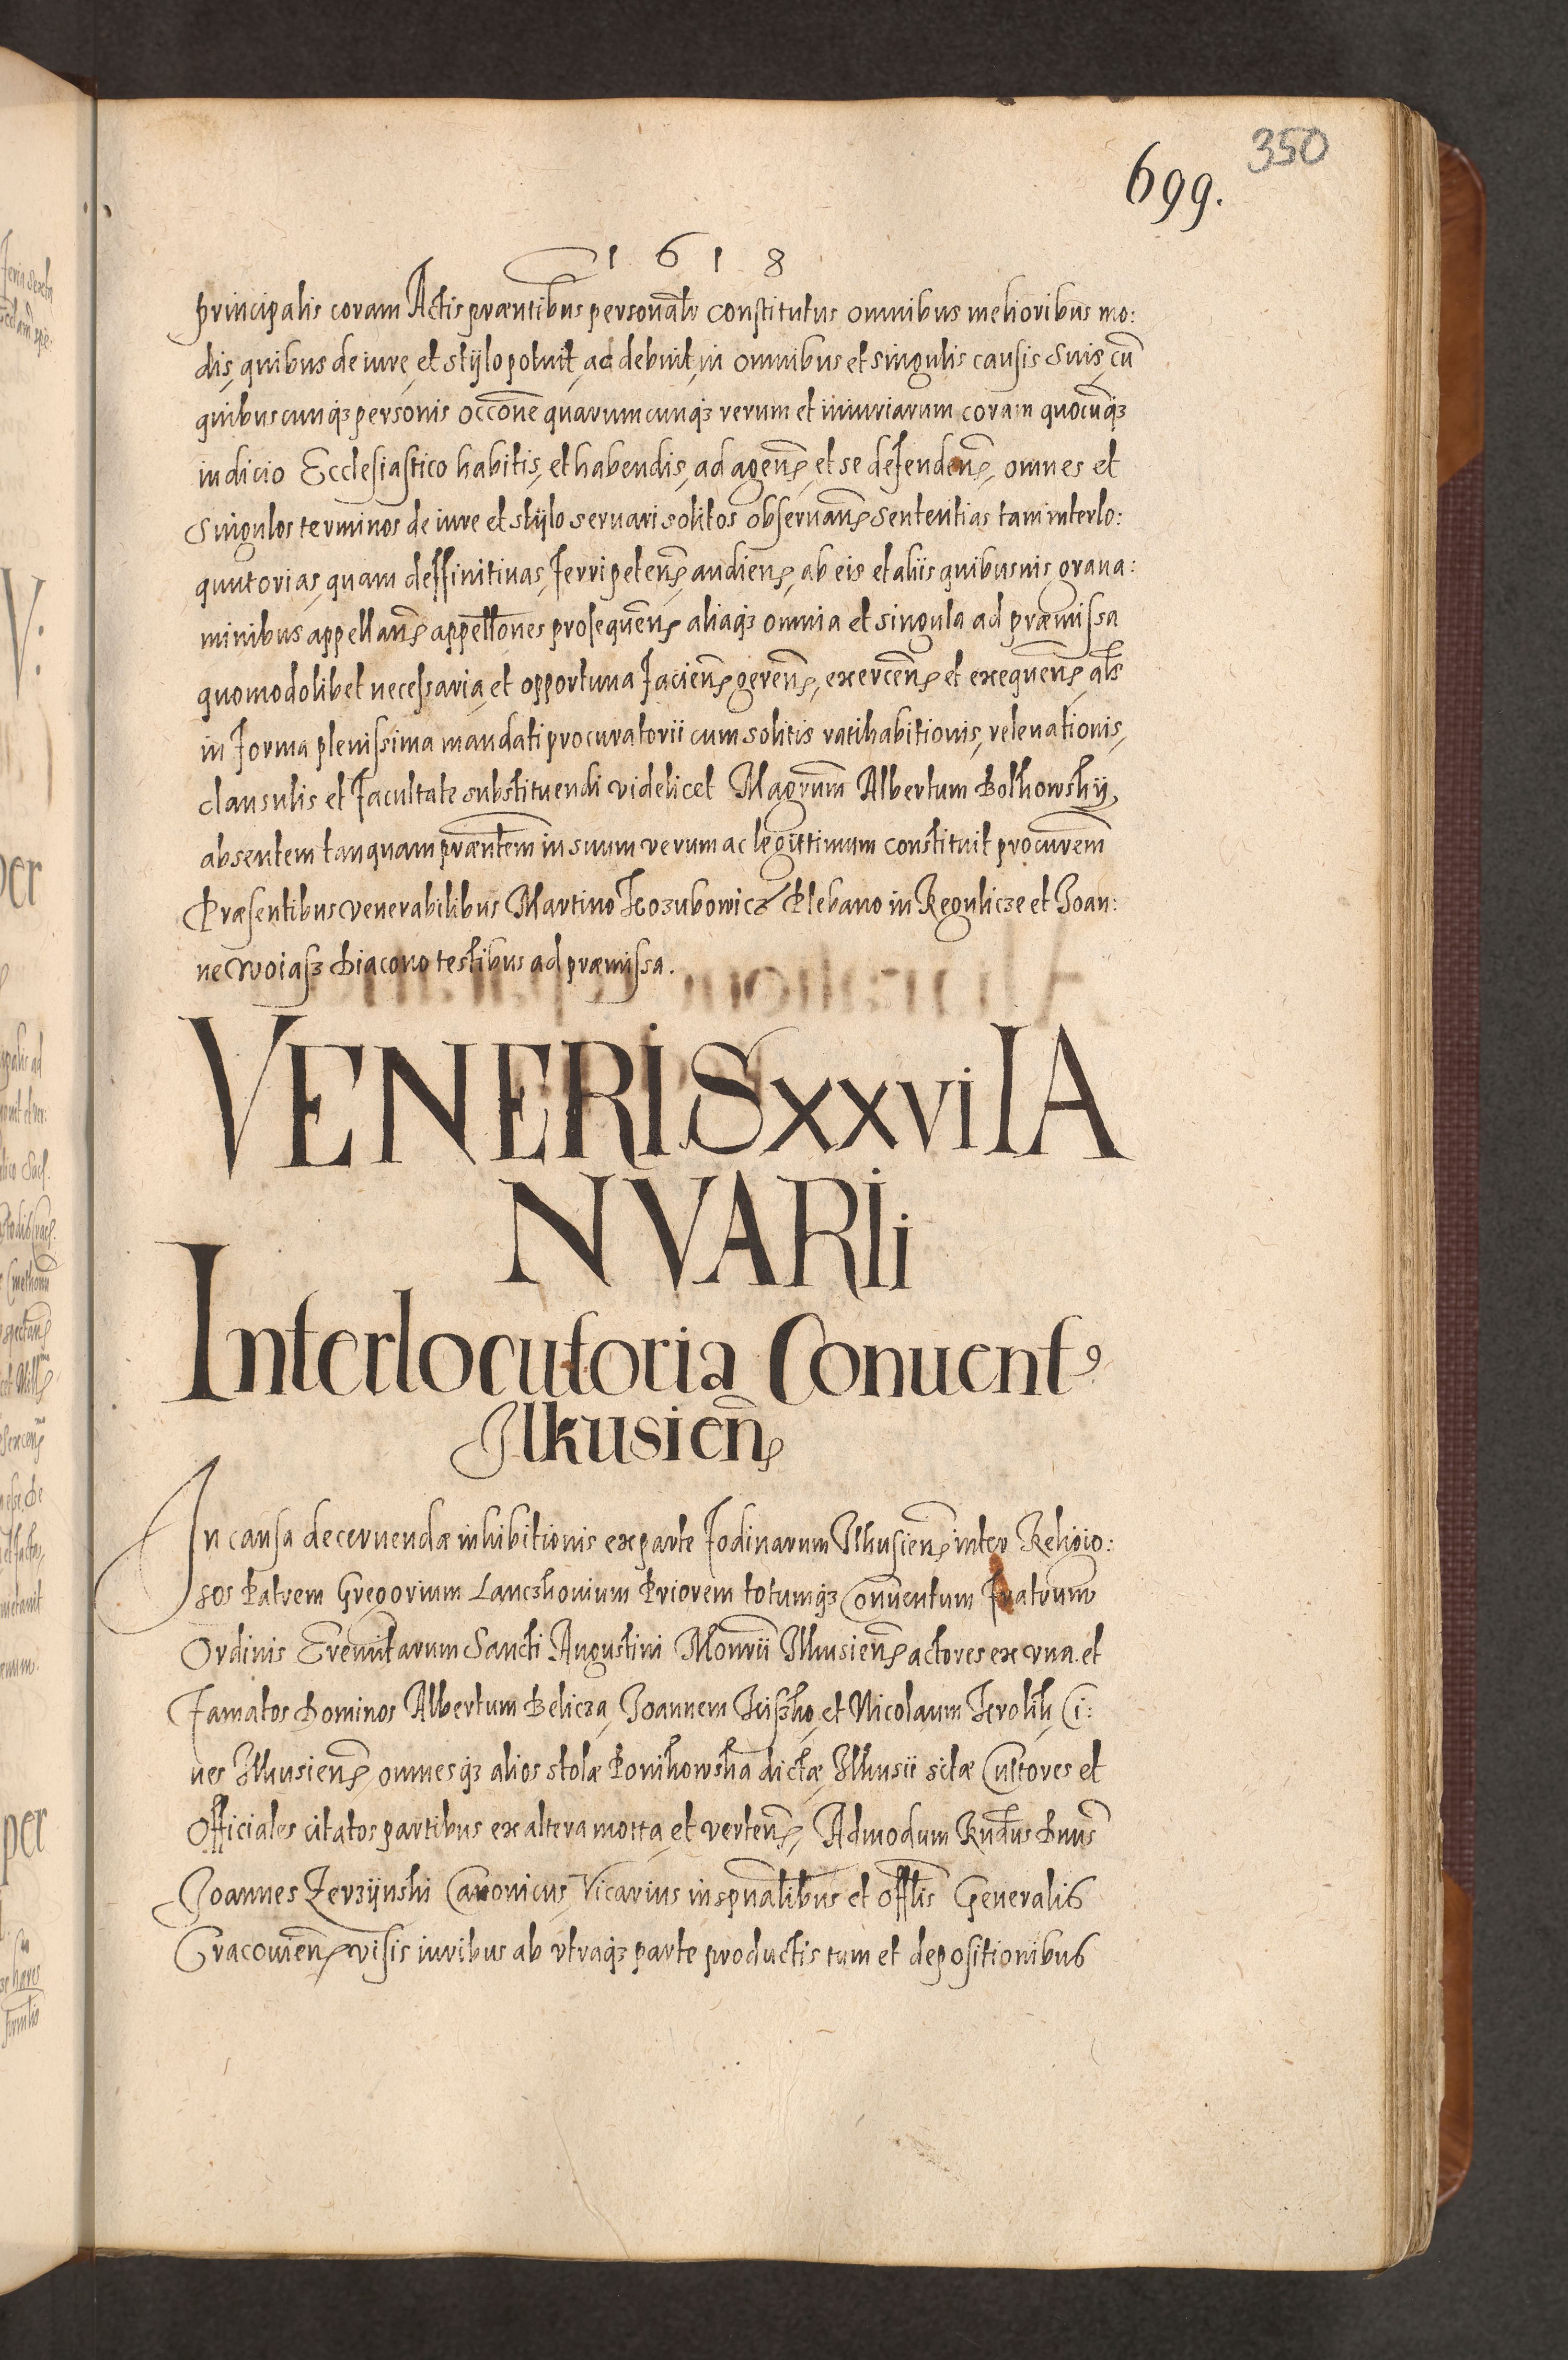 350
699.
1 6 1 8
principalis coram Actis præntibus personalr constitutus omnibus melioribus mo:
dis, quibus de iure, et stylo potuit, ac debuit, in omnibus et singulis causis suis, cū
quibuscunqȝ personis occone quarumcunqȝ rerum et iniuriarum coram quocūqȝ
iudicio Ecclesiastico habitis, et habendis, ad agen̄, et se defenden̄, omnes et
singulos terminos de iure et stylo seruari solitos obseruan̄ sententias tam interlo:
quutorias, quam deffinitiuas, ferri peten̄ audien̄, ab eis et aliis quibusuis graua:
minibus appellan̄ appellones prosequen̄ aliaqȝ omnia et singula ad præmissa
quomodolibet necessaria, et opportuna facien̄ geren̄, exercen̄ et exequen̄ als
in forma plenissima mandati procuratorii cum solitis ratihabitionis, releuationis,
clausulis et facultate substituendi videlicet Magrum Albertum Bolkowsky,
absentem tanquam præntem in suum verum ac legittimum constituit procurem
Præsentibus venerabilibus Martino Kozubowicz Plebano in Regulicze et Joan:
ne Woiasz Diacono testibus ad præmissa.
VENERIS xxvi IA
NVARIi
Interlocutoria Conuent9
Ilkusien̄
In causa decernendæ inhibitionis ex parte fodinarum Ilkusien̄ inter Religio:
sos Patrem Gregorium Lanczkonium Priorem totumqȝ Conuentum Fratrum
Ordinis Eremitarum Sancti Augustini Monrii Ilkusien̄ actores ex vna et
Famatos Dominos Albertum Belicza, Joannem Kiszko, et Nicolaum Krolik Ci:
ues Ilkusien̄, omnesqȝ alios stolæ Ponikowska dictæ, Ilkusii sitæ Cultores et
Officiales citatos partibus ex altera motta, et verten̄, Admodum Rndus Dnus
Joannes Zerzynski Canonicus, Vicarius in spualibus et offlis Generalis
Cracouien̄ visis iuribus ab vtraqȝ parte productis tum et depositionibus